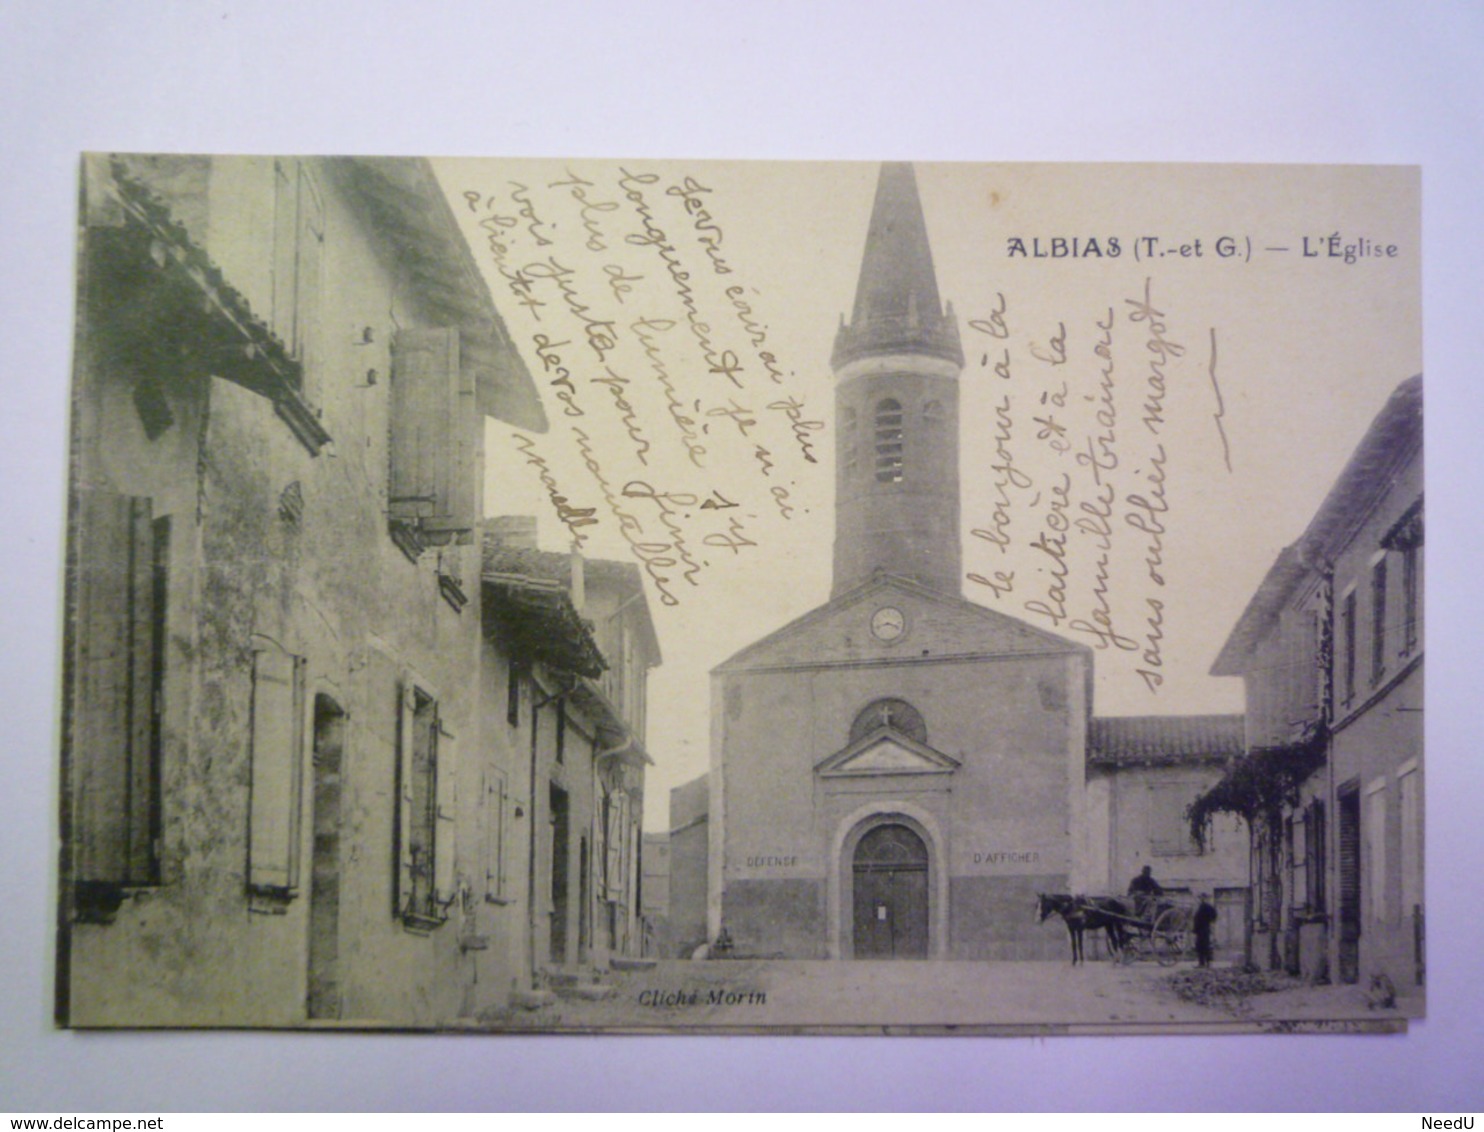 ALBIAS (T.-et G.) — L'Église
je vous écrirai plus
longuement je n'ai
plus de lumière j'y
vois juste pour finir
à bientot de vos nouvelles
le bonjour à la
laitière et à la
famille trainac
sans oublier margot
DÉFENSE D'AFFICHER
Cliché Morin
www.delcampe.net
NeedU